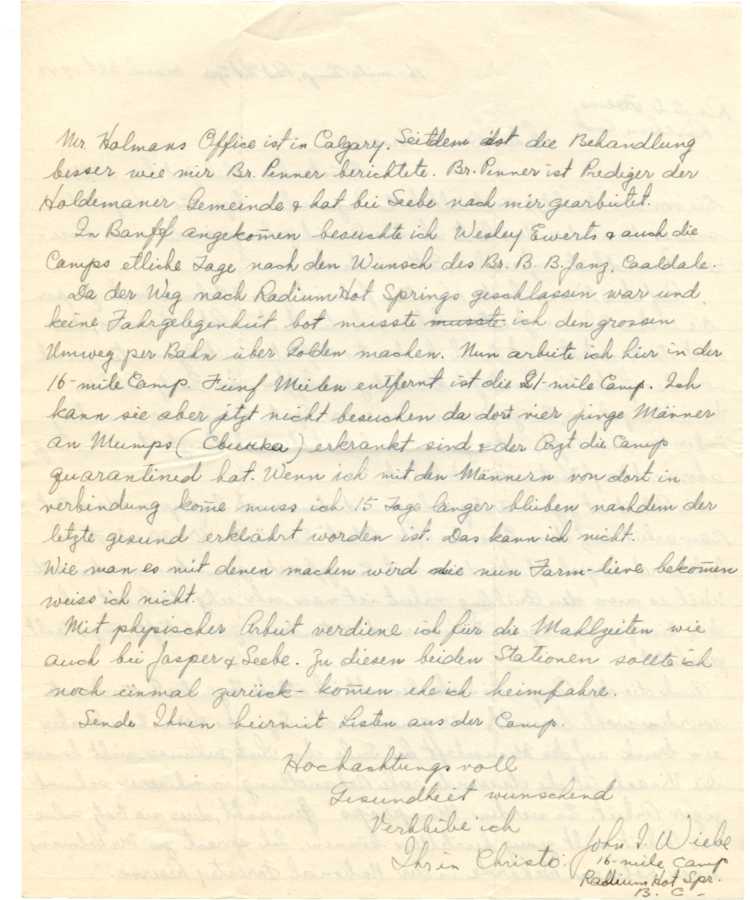 Mr. Holmans Office ist in Calgary. Seitdem ist die Behandlung
besser wie mir Br. Penner berichtete. Br. Penner ist Prediger der
Holdemaner Gemeinde & hat bei Seebe nach mir gearbeitet.
In Banff angekom̄en besuchte ich Wesley Ewerts & auch die
Camps etliche Tage nach den Wunsch des Br. B. B. Janz, Coaldale.
Da der Weg nach Radium Hot Springs geschlassen war und
keine Fahrgelegenheit bot musste musste ich den grossen
Umweg per Bahn über Golden machen. Nun arbeite ich hier in der
16-mile Camp. Fünf Meilen entfernt ist die 21-mile Camp. Ich
kann sie aber jetzt nicht besuchen da dort vier junge Männer
an Mumps (Свинка) erkrankt sind & der Arzt die Camp
quarantined hat. Wenn ich mit den Männern von dort in
verbindung kom̄e muss ich 15 Tage länger bleiben nachdem der
letzte gesund erklährt worden ist. Das kann ich nicht.
Wie man es mit denen machen wird die nun Farm-lieve bekom̄en
weiss ich nicht.
Mit physischer Arbeit verdiene ich für die Mahlzeiten wie
auch bei Jasper & Seebe. Zu diesen beiden Stationen sollte ich
noch einmal zurück-kom̄en ehe ich heimfahre.
Sende Ihnen hiermit Listen aus der Camp.
Hochachtungsvoll
Gesundheit wünschend
Verbleibe ich
Ihr in Christo: John I. Wiebe
16-mile Camp
Radium Hot Spr.
B. C-